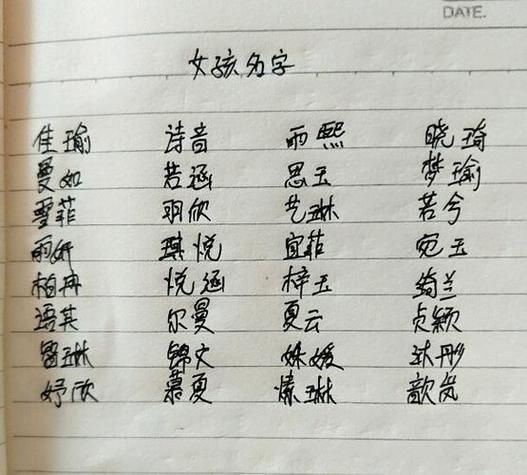 DATE.
女孩名字
佳瑜 诗音 雨熙 晓琦
曼如 若涵 思玉 梦瑜
雪菲 羽欣 艺琳 若兮
丽妍 琪悦 宜菲 宛玉
柏冉 悦涵 梓玉 绮兰
语其 尔曼 夏云 贞颖
锦文 姝媛
妤欣 慕夏 歆岚